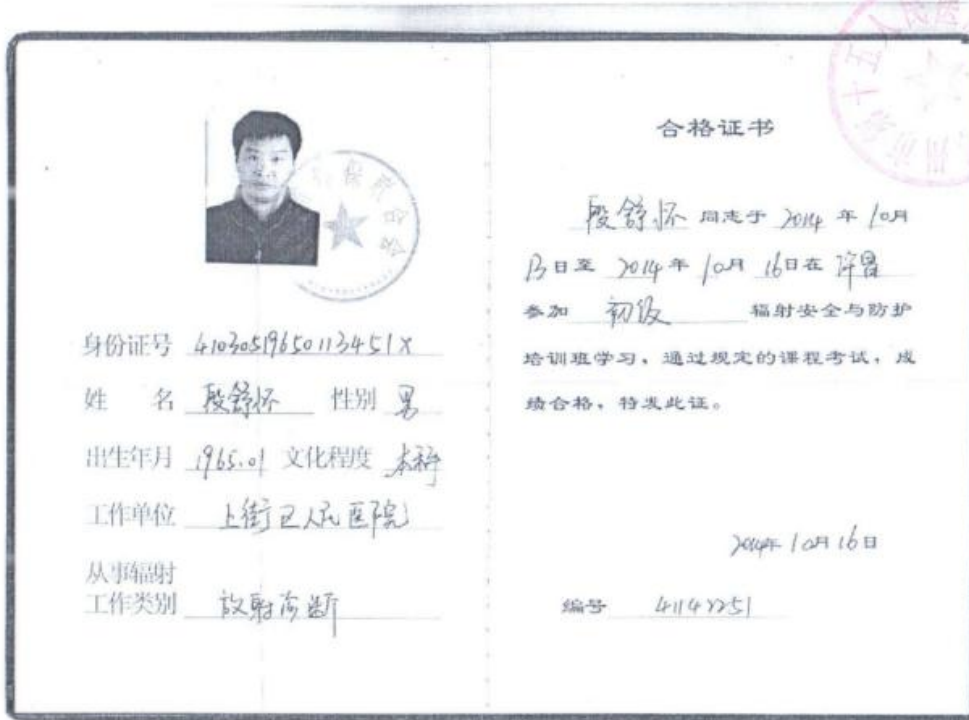 身份证号 41030519650113451X
姓 名 段舒怀 性别 男
出生年月 1965.01 文化程度 本科
工作单位 上街区人民医院
从事辐射
工作类别 放射诊断
合格证书
段舒怀 同志于 2014 年 10月
13日至 2014年 10月 16日在 许昌
参加 初级 辐射安全与防护
培训班学习，通过规定的课程考试，成
绩合格，特发此证。
2014年10月16日
编号 41142251
保联合会
十五人民医